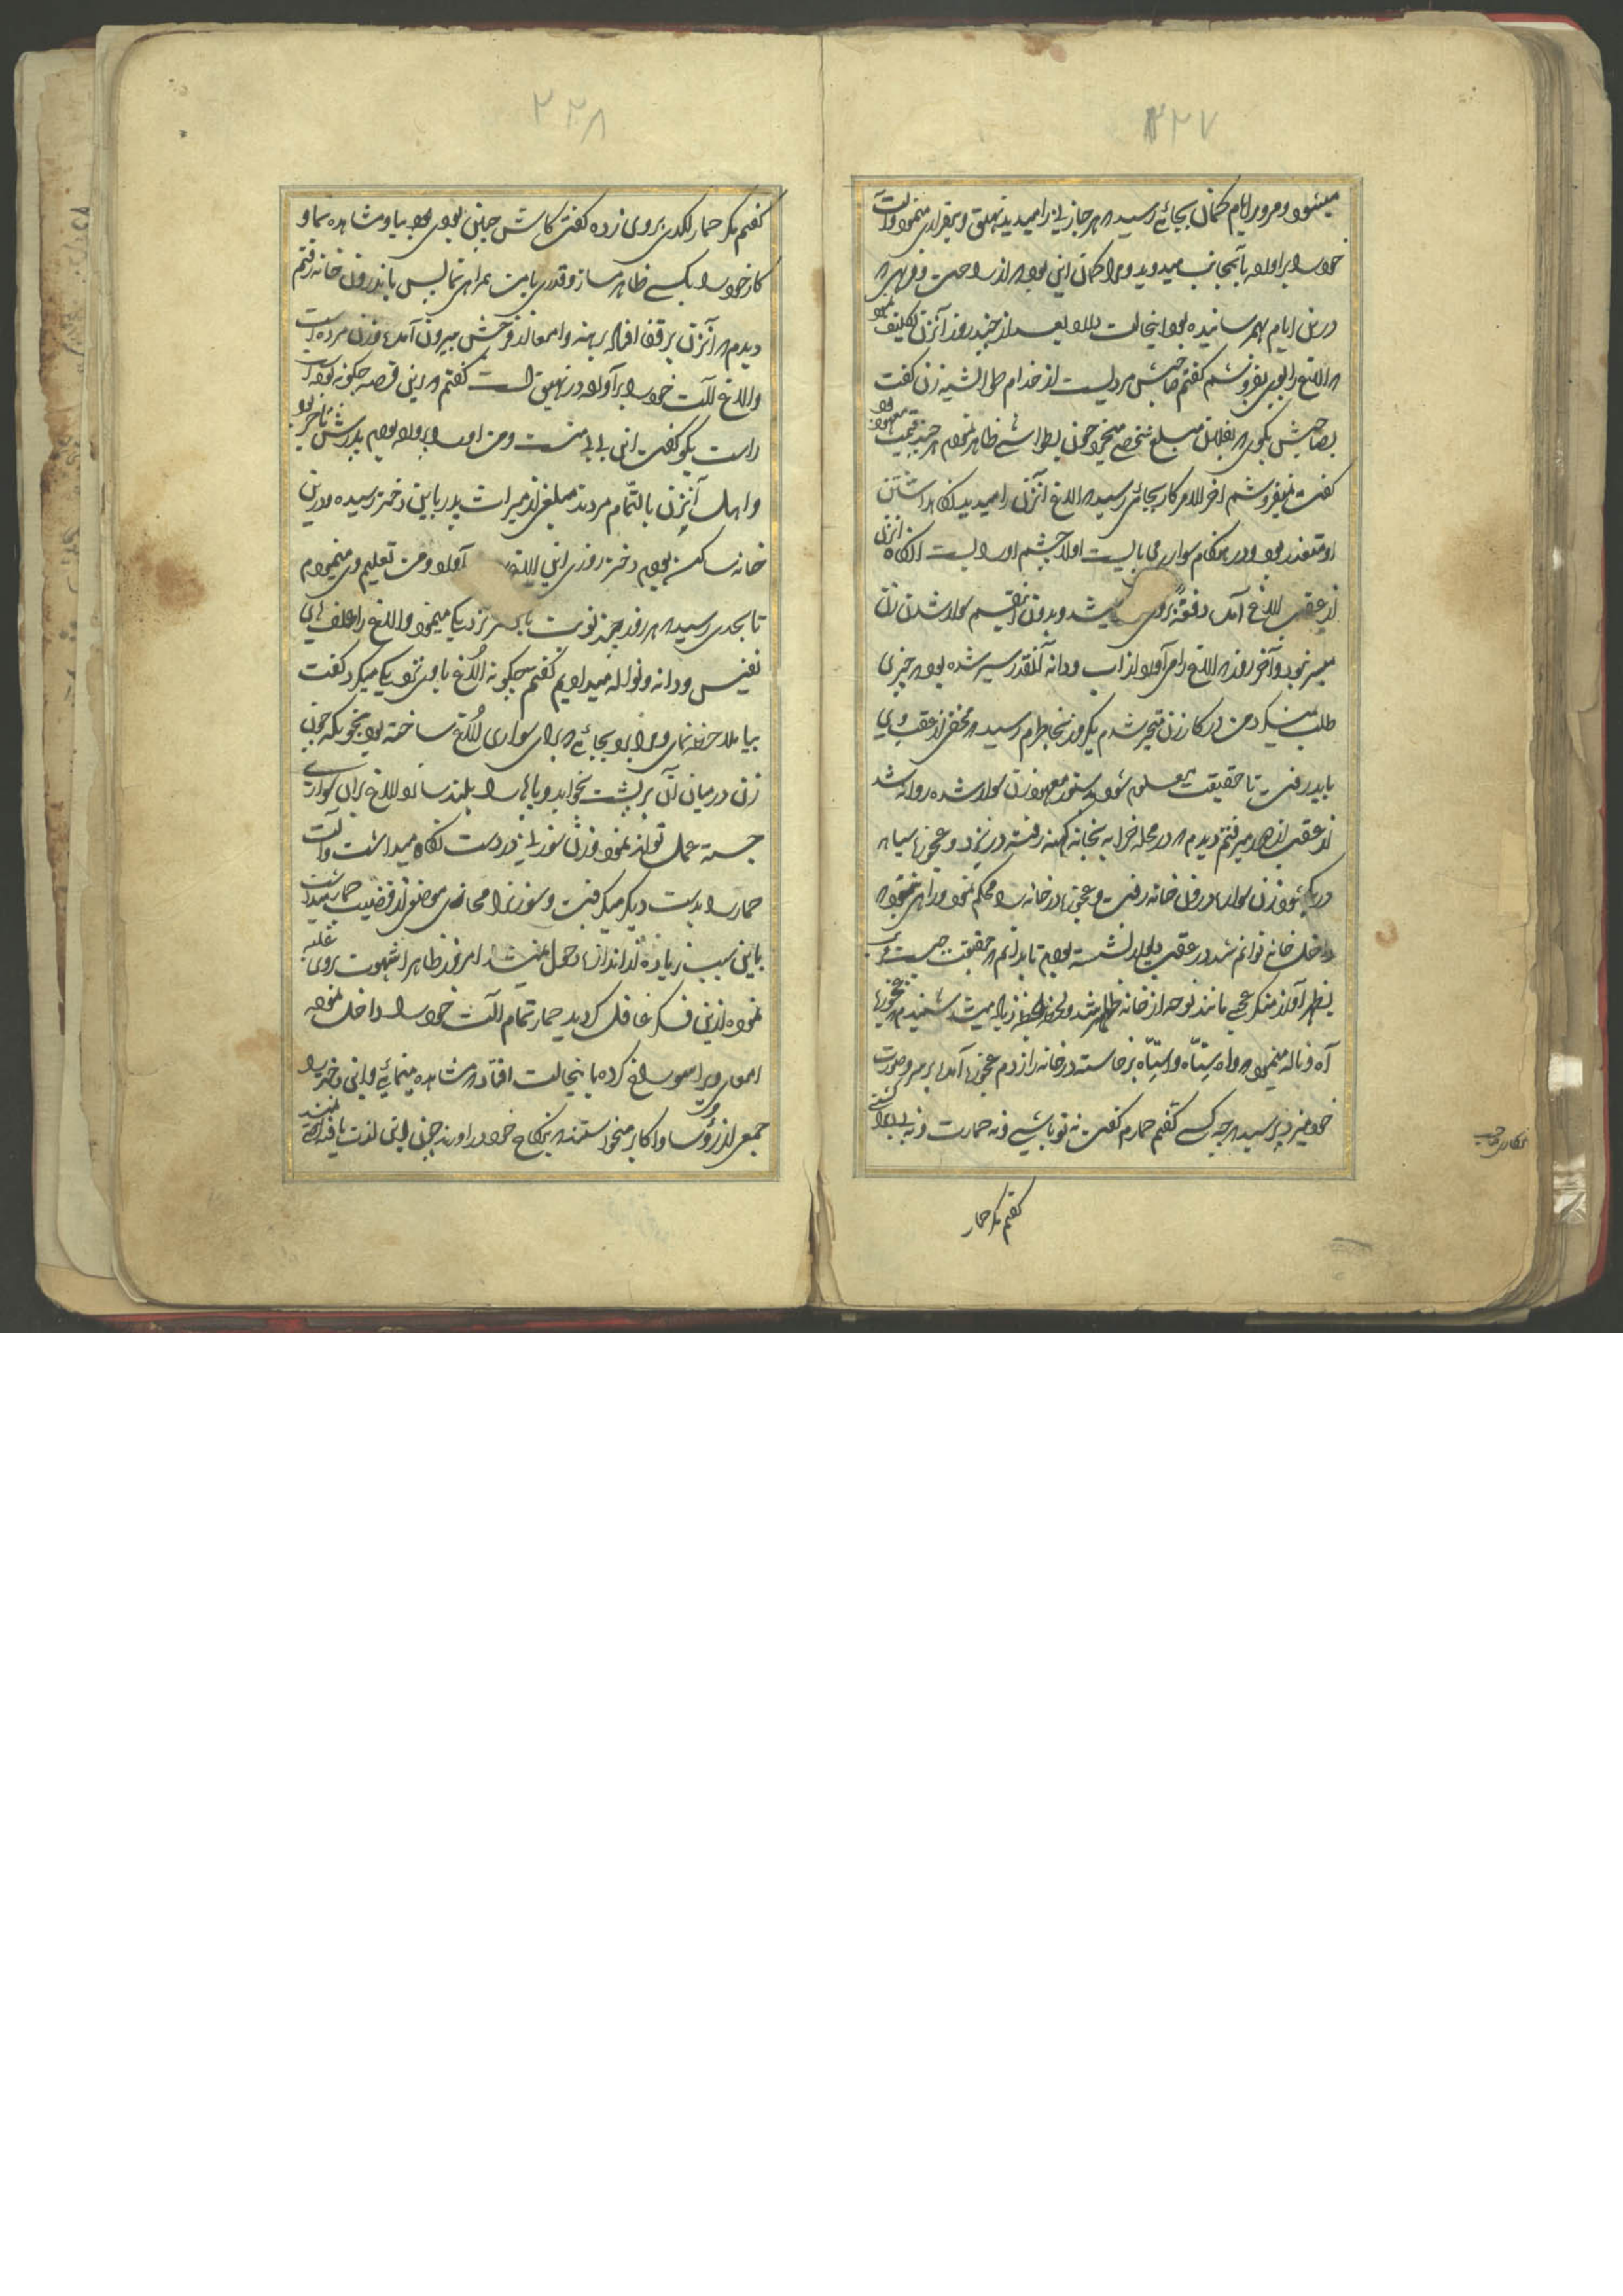 ۲۲۷
میشود و مرور ایام کمان بجائی رسید که هر جا زنی را میدید نهیق و بیقراری مینمود و آلت
خود را برآورده بآنجانب میدوید و مرا کمان این بود که از راحت و فربهی که
درین ایام بهم رسانیده بود اینحالت دارد بعد از چند روز آنزن تکلیف نمود
که الاغ را بوی بفروشم کفتم صاحبش مردیست از خدام زن کفت
بصاحبش بکوی که بفلان مبلغ شخصی میخرد چون بطواشی ظاهر نمودم هر چند قیمت
کفت میفروشم آخر الامر کار بجائی رسید که الاغ آنزن را میدید نکاهداشتن
او متعذر بود و در هنکام سواری می بایست اولا چشم او را بست آنکاه آنزن
از عقب الاغ آمده دفعةً بروی میشد و بدون اینقسم سوار شدن زن
میسر نبود و آخر روز که الاغ را می آورد از آب و دانه آنقدر سیر شده بود که چیزی
طلب نمیکرد من در کار زن متحیر شدم یکروز بخاطرم رسید که مخفی از عقب وی
باید رفت تا حقیقت معلوم شود بدستور معهود زن سوار شده روانه شد
از عقب او میرفتم دیدم که در محله خرابه بخانه کهنه رفته در بزد و عجوزه سیاه
در بکشود زن سواره درون خانه رفت و عجوزه در خانه را محکم نمود و راهی نبود که
داخل خانه توانم شد در عقب دیوار نشسته بودم تا بدانم که حقیقت چیست
بظهر آواز منکر عجبی مانند نوحه از خانه ظاهر شد و لحظه لحظه زیاد میشد شنیدم که عجوزه
آه و ناله مینمود که واه سِتّاه واسِتّاه برخاسته در خانه را زدم عجوزه آمد بر سر و صورت
خود میزد پرسید که چه کسی کفتم حمارم کفت نه تو باشی و نه حمارت
کفتم مکر حمار
۲۲۸
کفتم مکر حمار لکدی بروی زده کفت کاش چنین بودی بیا و مشاهده نما و
کار خود را بکسی ظاهر مساز و قدری با من همراهی نما پس باندرون خانه رفتم
دیدم که آنزن بر قفا افتاده برهنه و امعا از فرجش بیرون آمده و زن مرده است
و الاغ آلت خود را برآورده در نهیق است کفتم که این قصه چکونه بوده است
راست بکو کفت این بی بی منست و من او را پرورده بودم پدرش تاجر بود
و اهل آنزن بالتّمام مردند مبلغی از میراث پدر باین دختر رسیده و درین
خانه ساکن بودیم دختر روزی این الاغ آورد و من تعلیم وی مینمودم
تا بحدی رسید که هر روز چند نوبت با نزدیکی مینمود و الاغ را علف های
نفیس و دانه و نواله میدادیم کفتم چکونه الاغ با وی نزدیکی میکرد کفت
بیا ملاحظه نمای و مرا برد بجائی که برای سواری الاغ ساخته بود بنحویکه چون
زن در میان آن بر پشت بخوابد و پاها را بلند سازد الاغ بران سواری
جسته عمل تواند نمود و زن سوزنی در دست نکاه میداشت و آلت
حمار را بدست دیکر میکرفت و سوزن را محاذی موضعی از قضیب حمار میداشت
باین سبب زیاده از اندازه دخول نمیشد امروز ظاهرا شهوت بروی غلبه
نموده ازین فکر غافل کردید حمار تمام آلت خود را داخل نموده
امعای ویرا سوراخ کرده باینحالت افتاد که مشاهده مینمائی و این دختر را
جمعی از رؤسا و اکابر میخواستند که بنکاح خود درآورند چون این لذت یافته